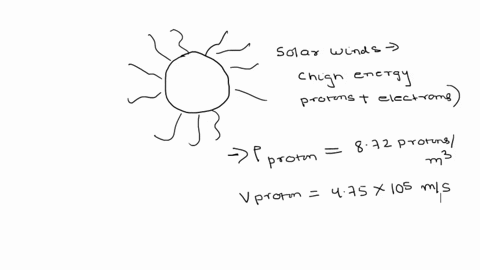 Solar winds →
(high energy
protons + electrons)
→ ρ proton = 8.72 protons/
m³
V proton = 4.75 × 10⁵ m/s